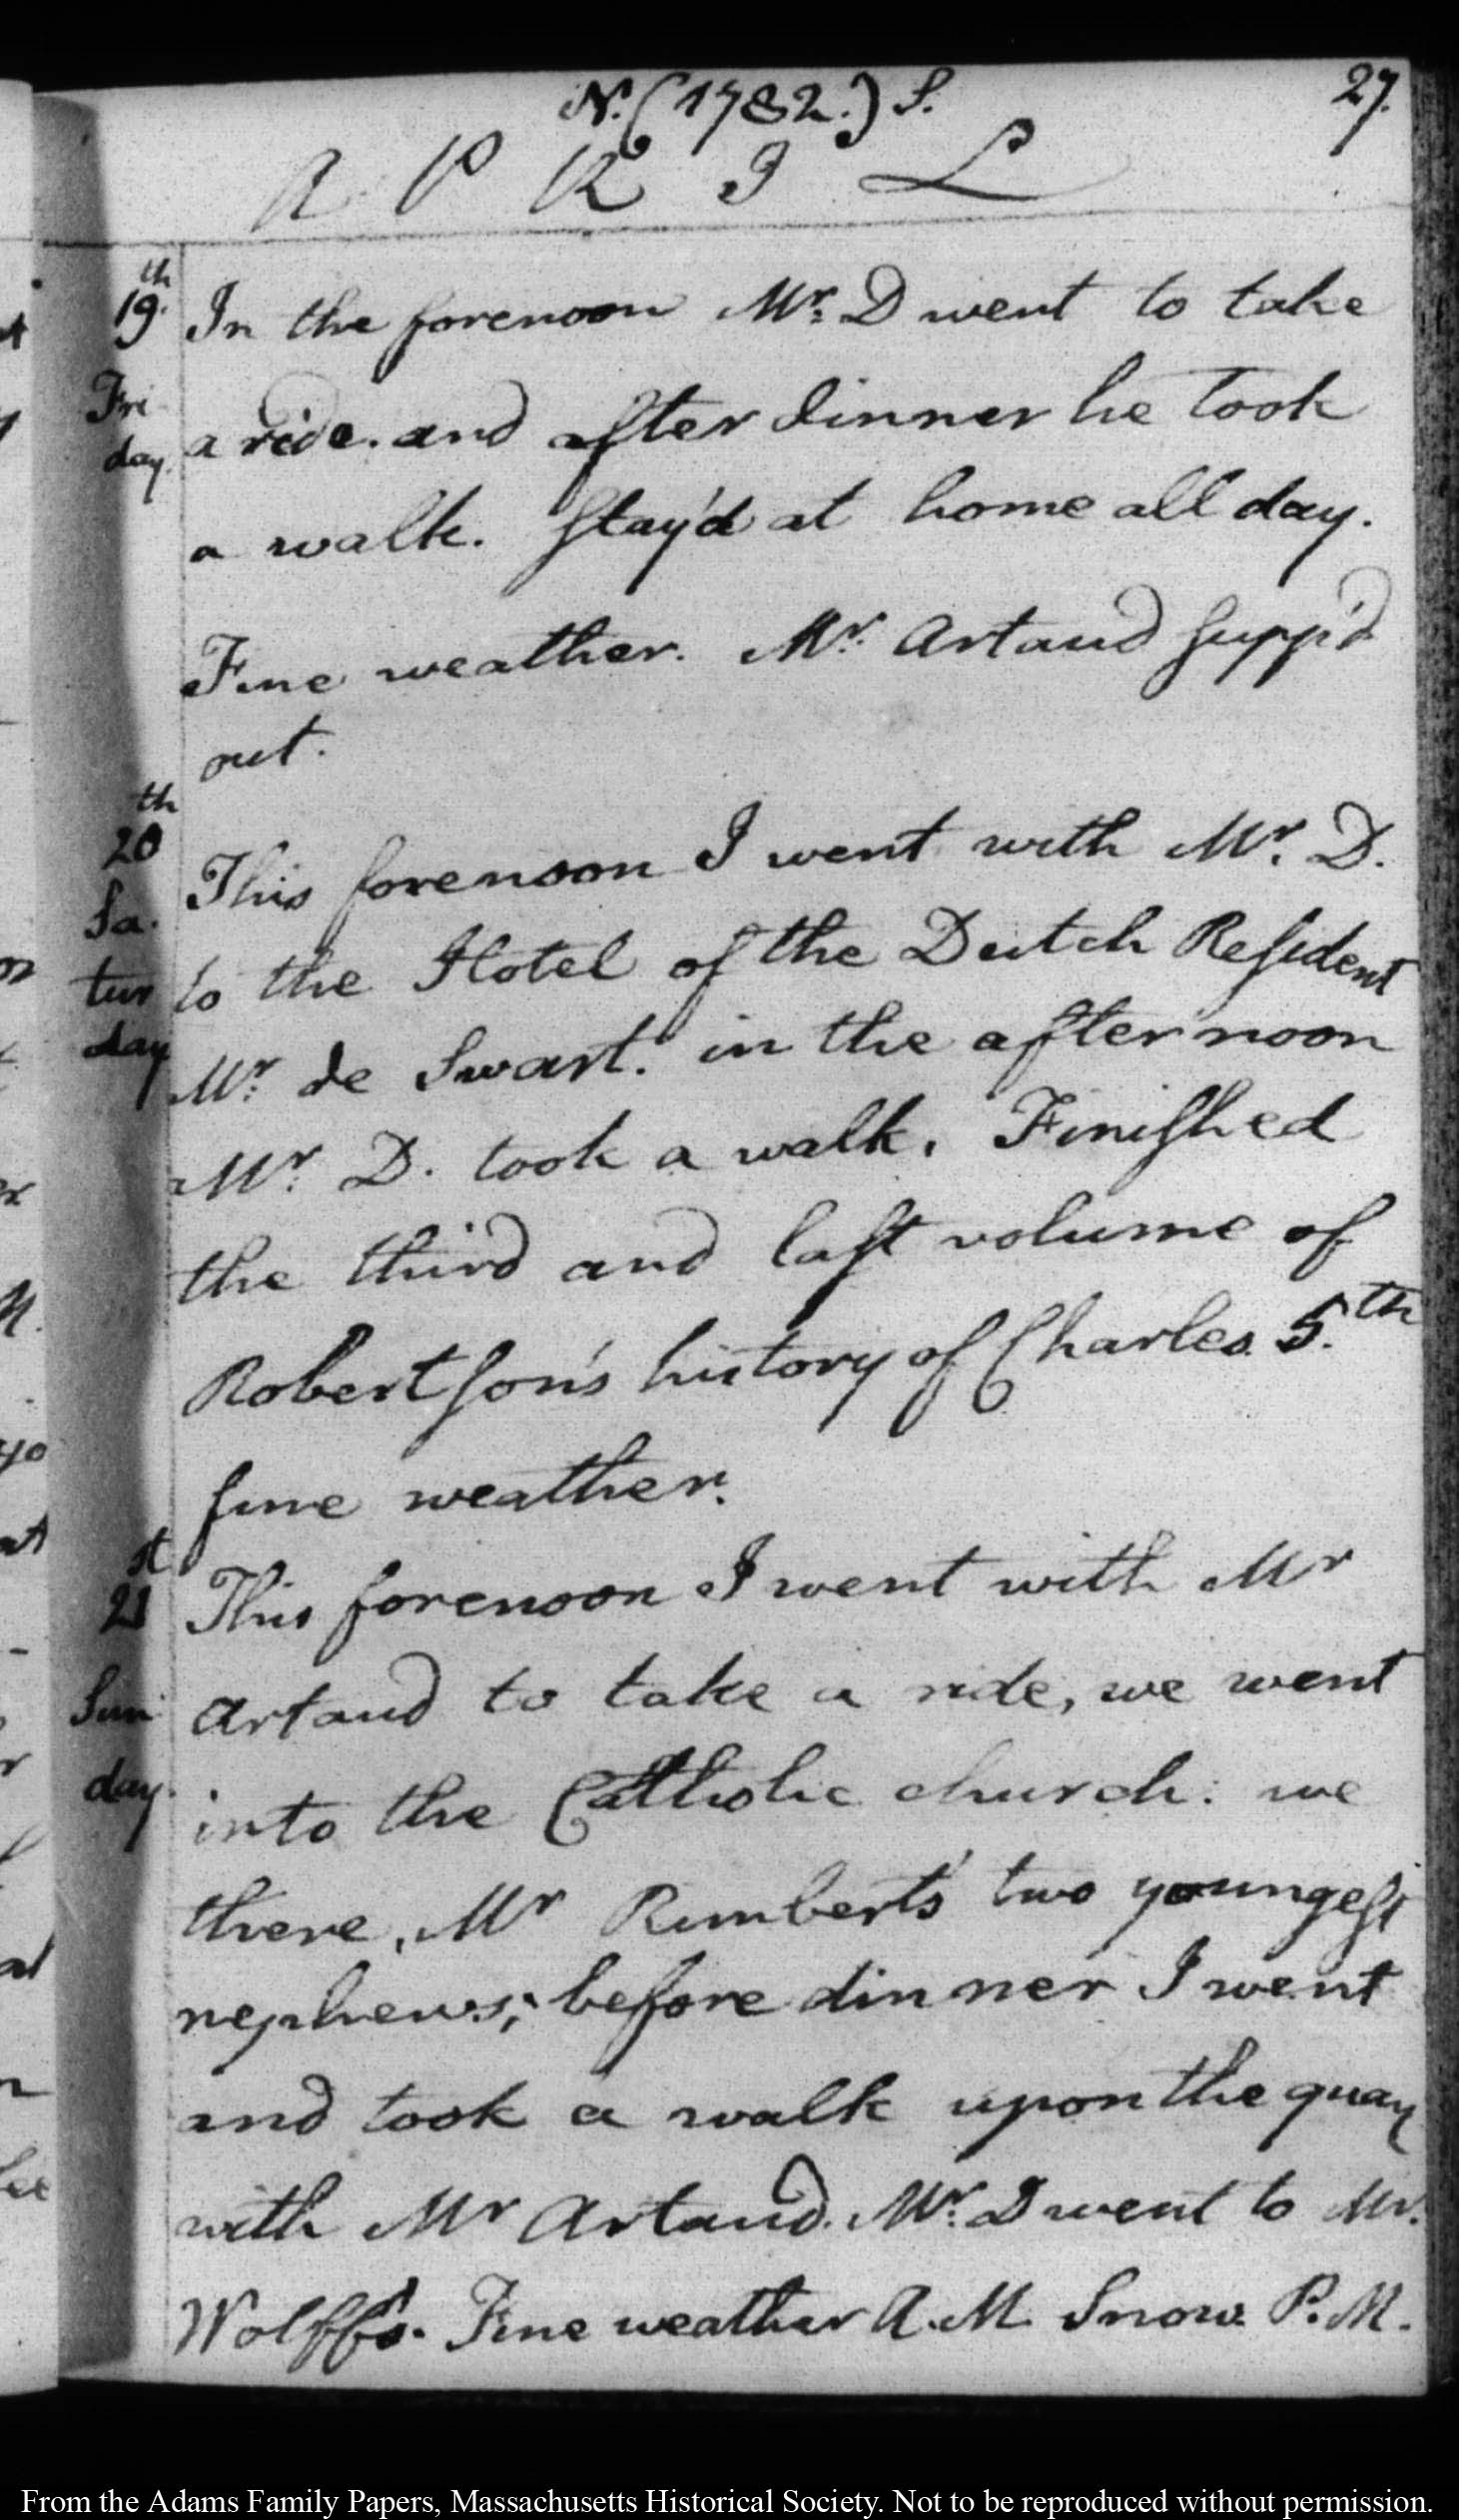 N. (1782.) S.
27.
APRIL
19.th In the forenoon Mr. D went to take
Fri a ride. and after dinner he took
day. a walk. Stay'd at home all day.
Fine weather. Mr. Artaud supp'd
out.
20th This forenoon I went with Mr. D.
Sa. to the Hotel of the Dutch Resident
tur
day Mr. de Swart. in the afternoon
Mr. D. took a walk. Finished
the third and last volume of
Robertson's history of Charles 5.th
fine weather.
21st This forenoon I went with Mr
Sun Artaud to take a ride, we went
day. into the Catholic church: we
there, Mr Rimbert's two youngest
nephews; before dinner I went
and took a walk upon the quay
with Mr Artaud. Mr. D went to Mr.
Wolff's. Fine weather A.M. Snow P.M.
From the Adams Family Papers, Massachusetts Historical Society. Not to be reproduced without permission.